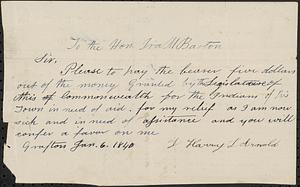 To the Hon. Ira M Barton
Sir,
Please to pay the bearer five dollars
out of the money Granted by the Legislature of
this Commonwealth for the Indians of his
Town in need of aid, for my relief as I am now
sick and in need of assistance and you will
confer a favor on me
Grafton Jan. 6. 1840 Harry Arnold